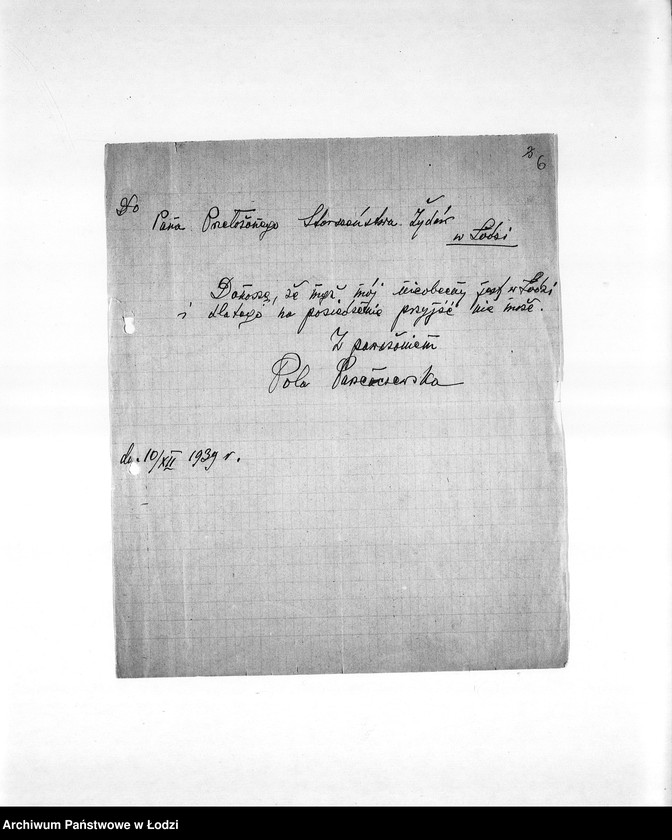 6
Do
Pana Przełożonego Starszeństwa Żydów
w Łodzi
Donoszę, że mąż mój nieobecny jest w Łodzi
i dlatego na posiedzenie przyjść nie może.
Z poważaniem
Pola
dn. 10/XII 1939 r.
Archiwum Państwowe w Łodzi